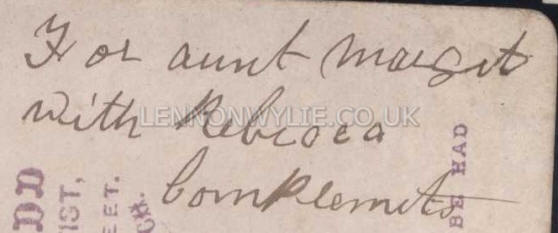 For aunt Margit
with Rebicca
Complemits
LENNONWYLIE.CO.UK
DD
IST,
EET.
GH.
BE HAD